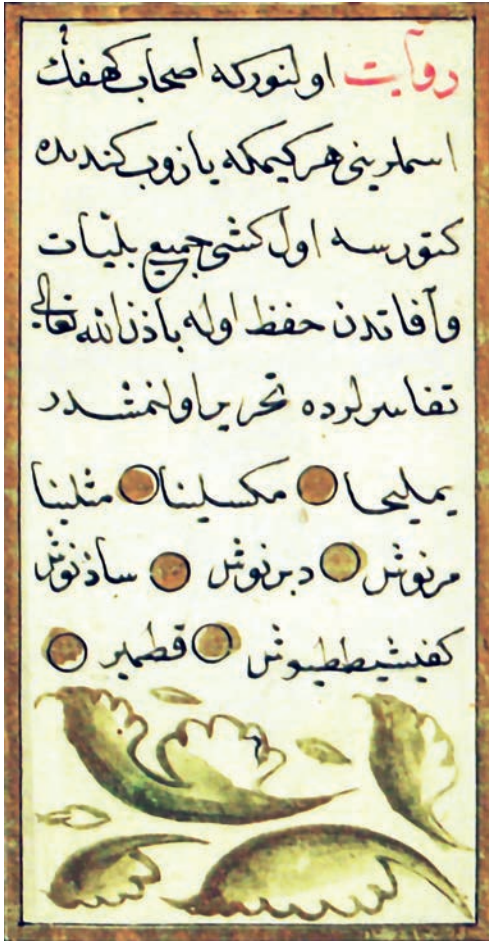 روایت اولنورکه اصحاب کهفڭ
اسملرینی هر کیمکه یازوب کندیده
کتورسه اول کشی جمیع بلیّات
وآفاتدن حفظ اوله باذن الله تعالی
تفاسیرلرده تحریر اولنمشدر
یملیخا مکسلینا مثلینا
مرنوش دبرنوش ساذنوش
کفیشیططیوش قطمیر